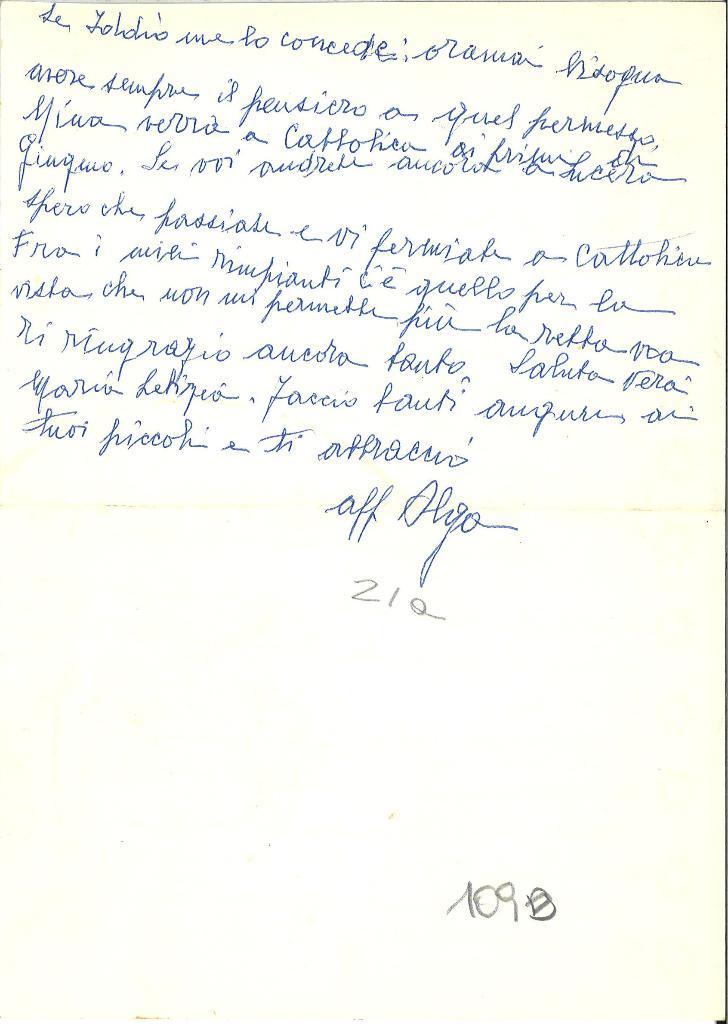 se Iddio me lo concede; oramai bisogna
avere sempre il pensiero a quel permesso.
Mina verrà a Cattolica ai primi di
Giugno. Se voi andrete ancora a Lucera
spero che passiate e vi fermiate a Cattolica
Fra i miei rimpianti c'è quello per la
vista che non mi permette più la retta via
Ti ringrazio ancora tanto. Saluta Vera
Maria Letizia. Faccio tanti auguri ai
tuoi piccoli e ti abbraccio
aff Olga
21a
109B